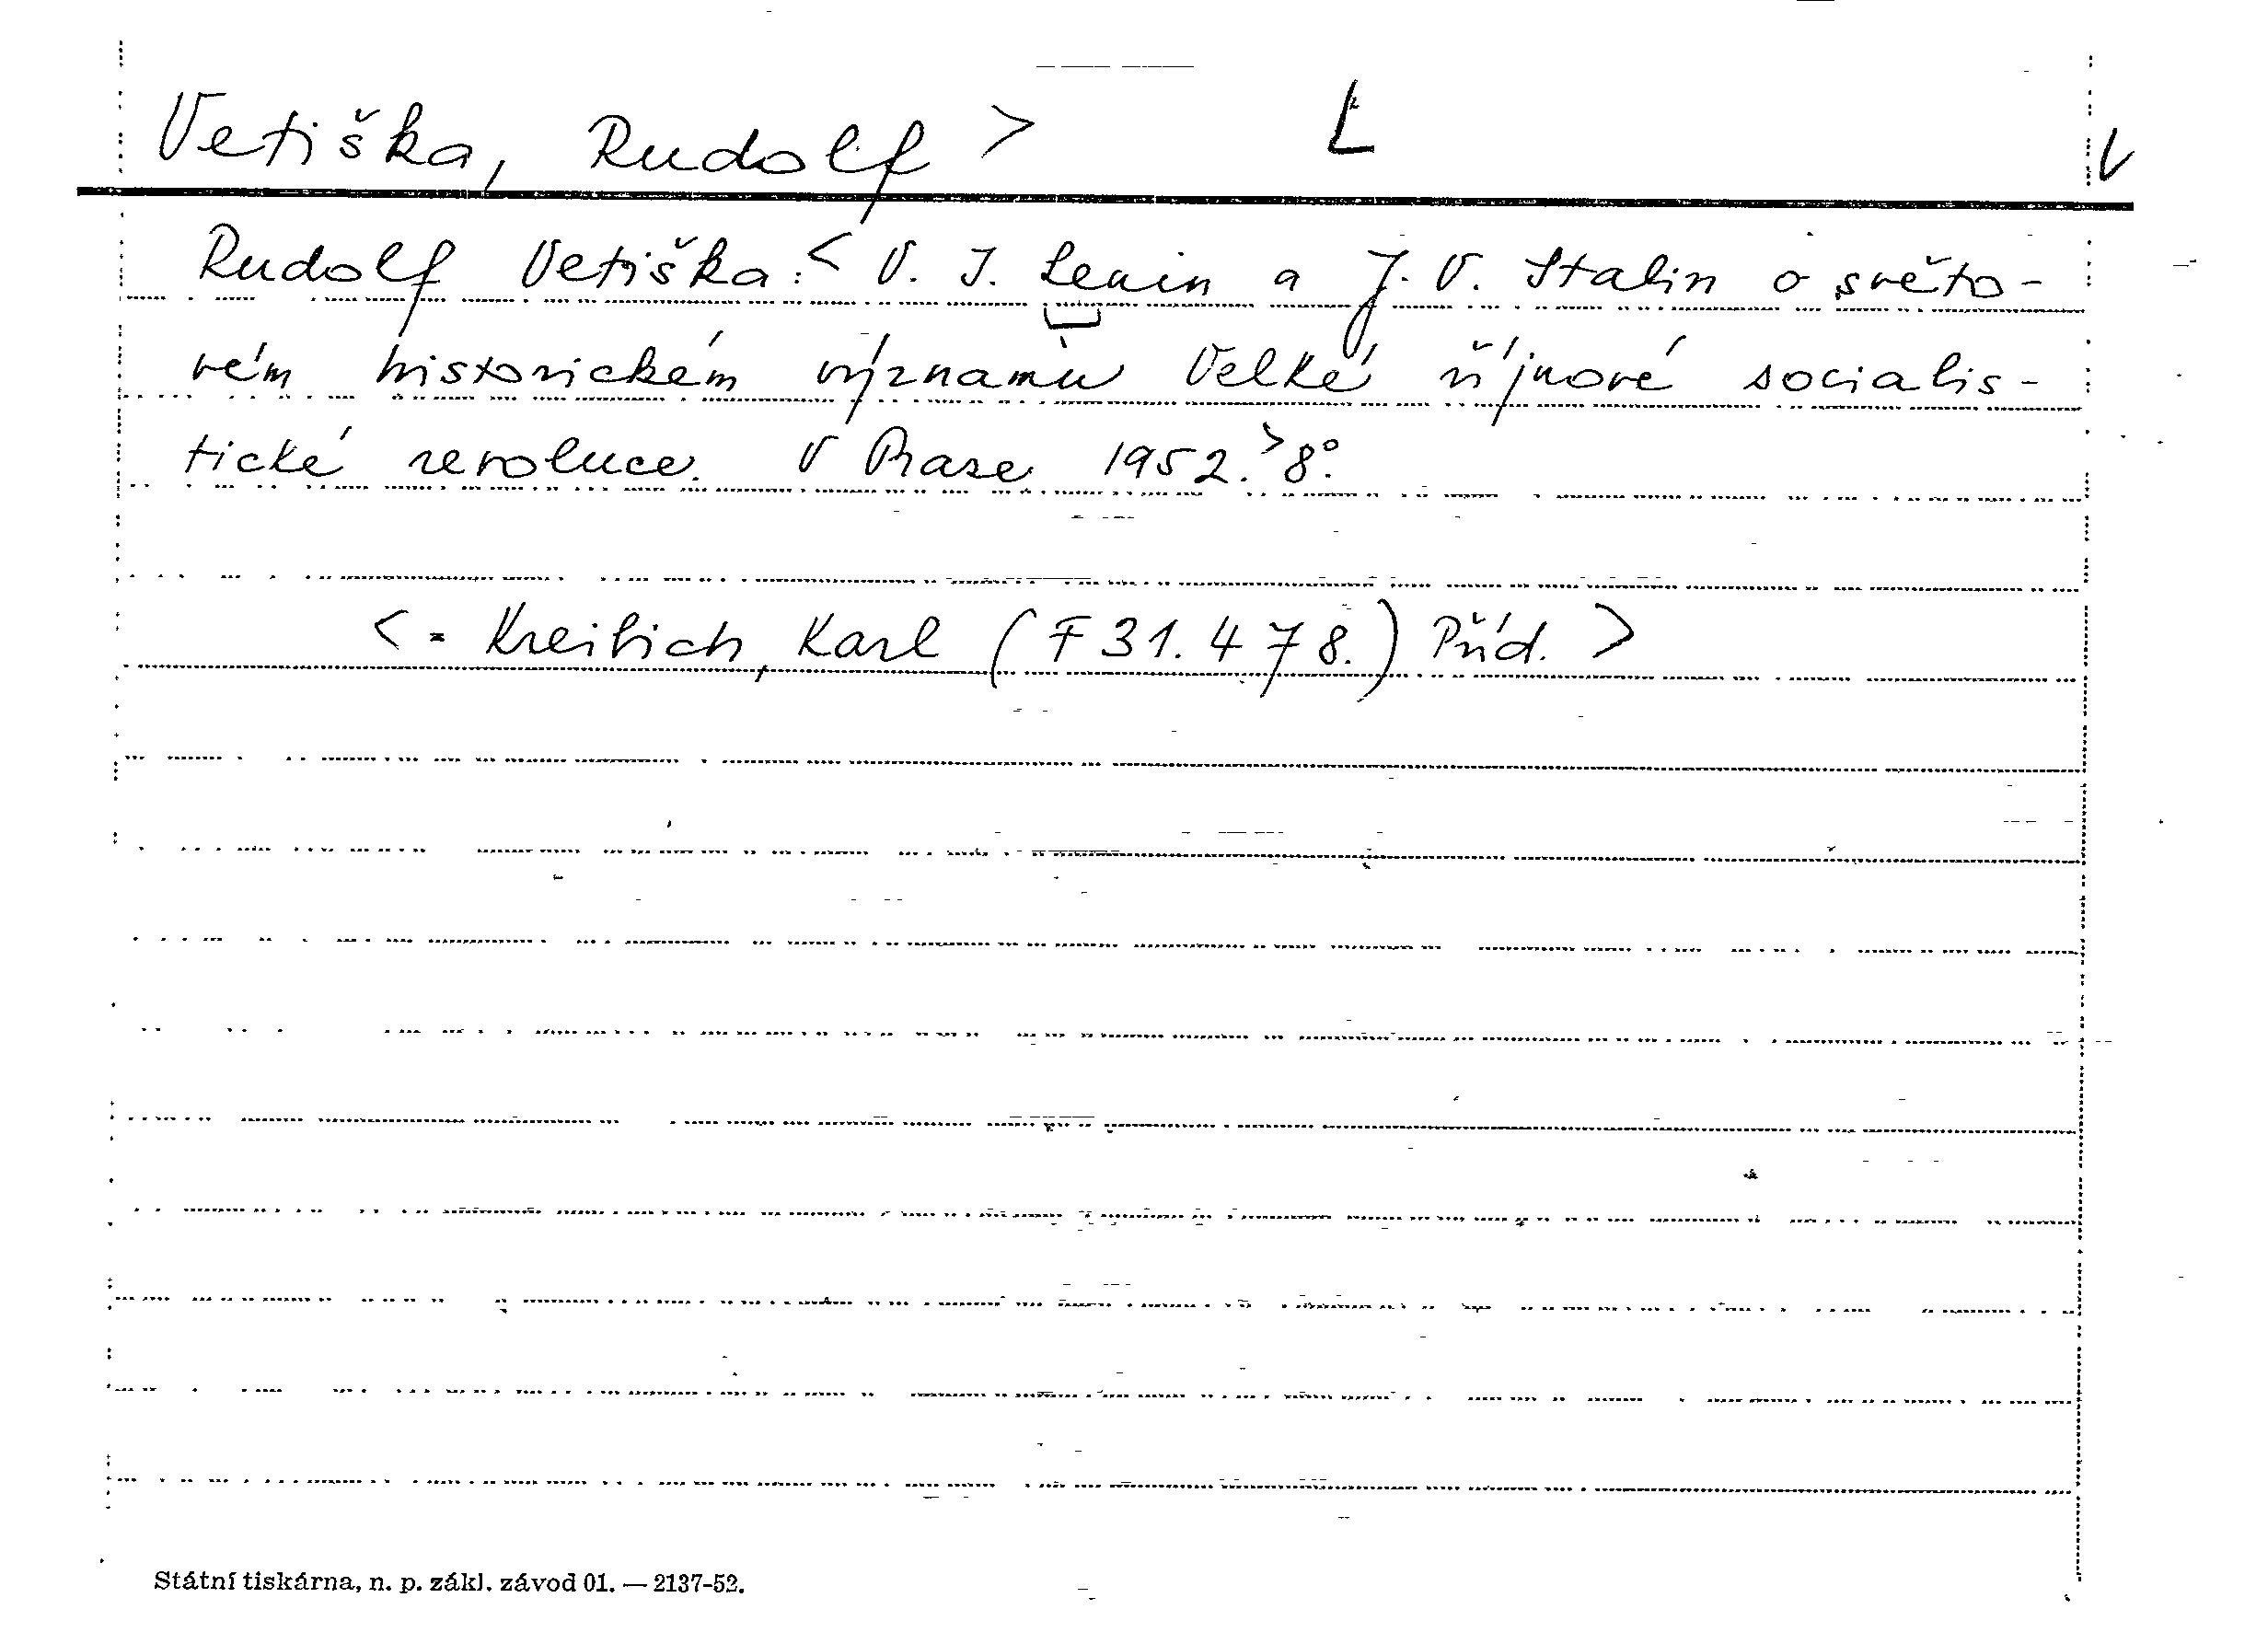 Vetiška, Rudolf > L V
Rudolf Vetiška: < V. I. Lenin a J. V. Stalin o světo-
vém historickém významu Velké říjnové socialis-
tické revoluce. V Praze 1952.> 8°.
< = Kreibich, Karl (F 31.478.) Příd. >
Státní tiskárna, n. p. zákl. závod 01. — 2137-52.